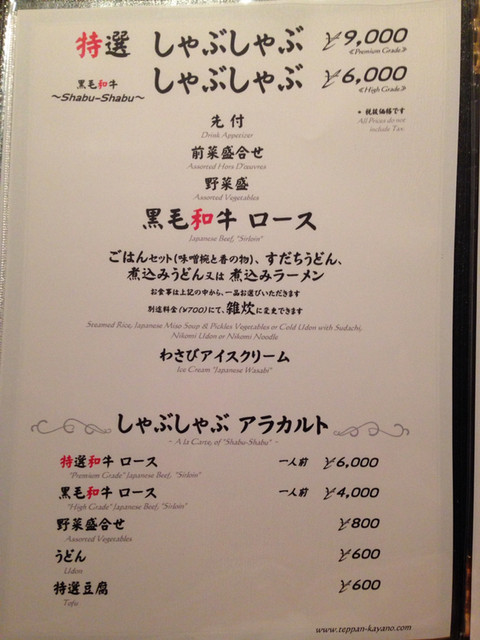 特選 しゃぶしゃぶ ¥9,000
≪Premium Grade≫
黒毛和牛 しゃぶしゃぶ ¥6,000
～Shabu-Shabu～ ≪High Grade≫
* 税抜価格です
All Prices do not
include Tax.
先付
Drink Appetizer
前菜盛合せ
Assorted Hors D'oeuvres
野菜盛
Assorted Vegetables
黒毛和牛 ロース
Japanese Beef, "Sirloin"
ごはんセット(味噌椀と香の物)、すだちうどん、
煮込みうどん又は 煮込みラーメン
お食事は上記の中から、一品お選びいただきます
別途料金(¥700)にて、雑炊に変更できます
Steamed Rice, Japanese Miso Soup & Pickles Vegetables or Cold Udon with Sudachi,
Nikomi Udon or Nikomi Noodle
わさびアイスクリーム
Ice Cream "Japanese Wasabi"
しゃぶしゃぶ アラカルト
- A la Carte, of "Shabu-Shabu" -
特選和牛 ロース 一人前 ¥6,000
"Premium Grade" Japanese Beef, "Sirloin"
黒毛和牛 ロース 一人前 ¥4,000
"High Grade" Japanese Beef, "Sirloin"
野菜盛合せ ¥800
Assorted Vegetables
うどん ¥600
Udon
特選豆腐 ¥600
Tofu
www.teppan-kayano.com